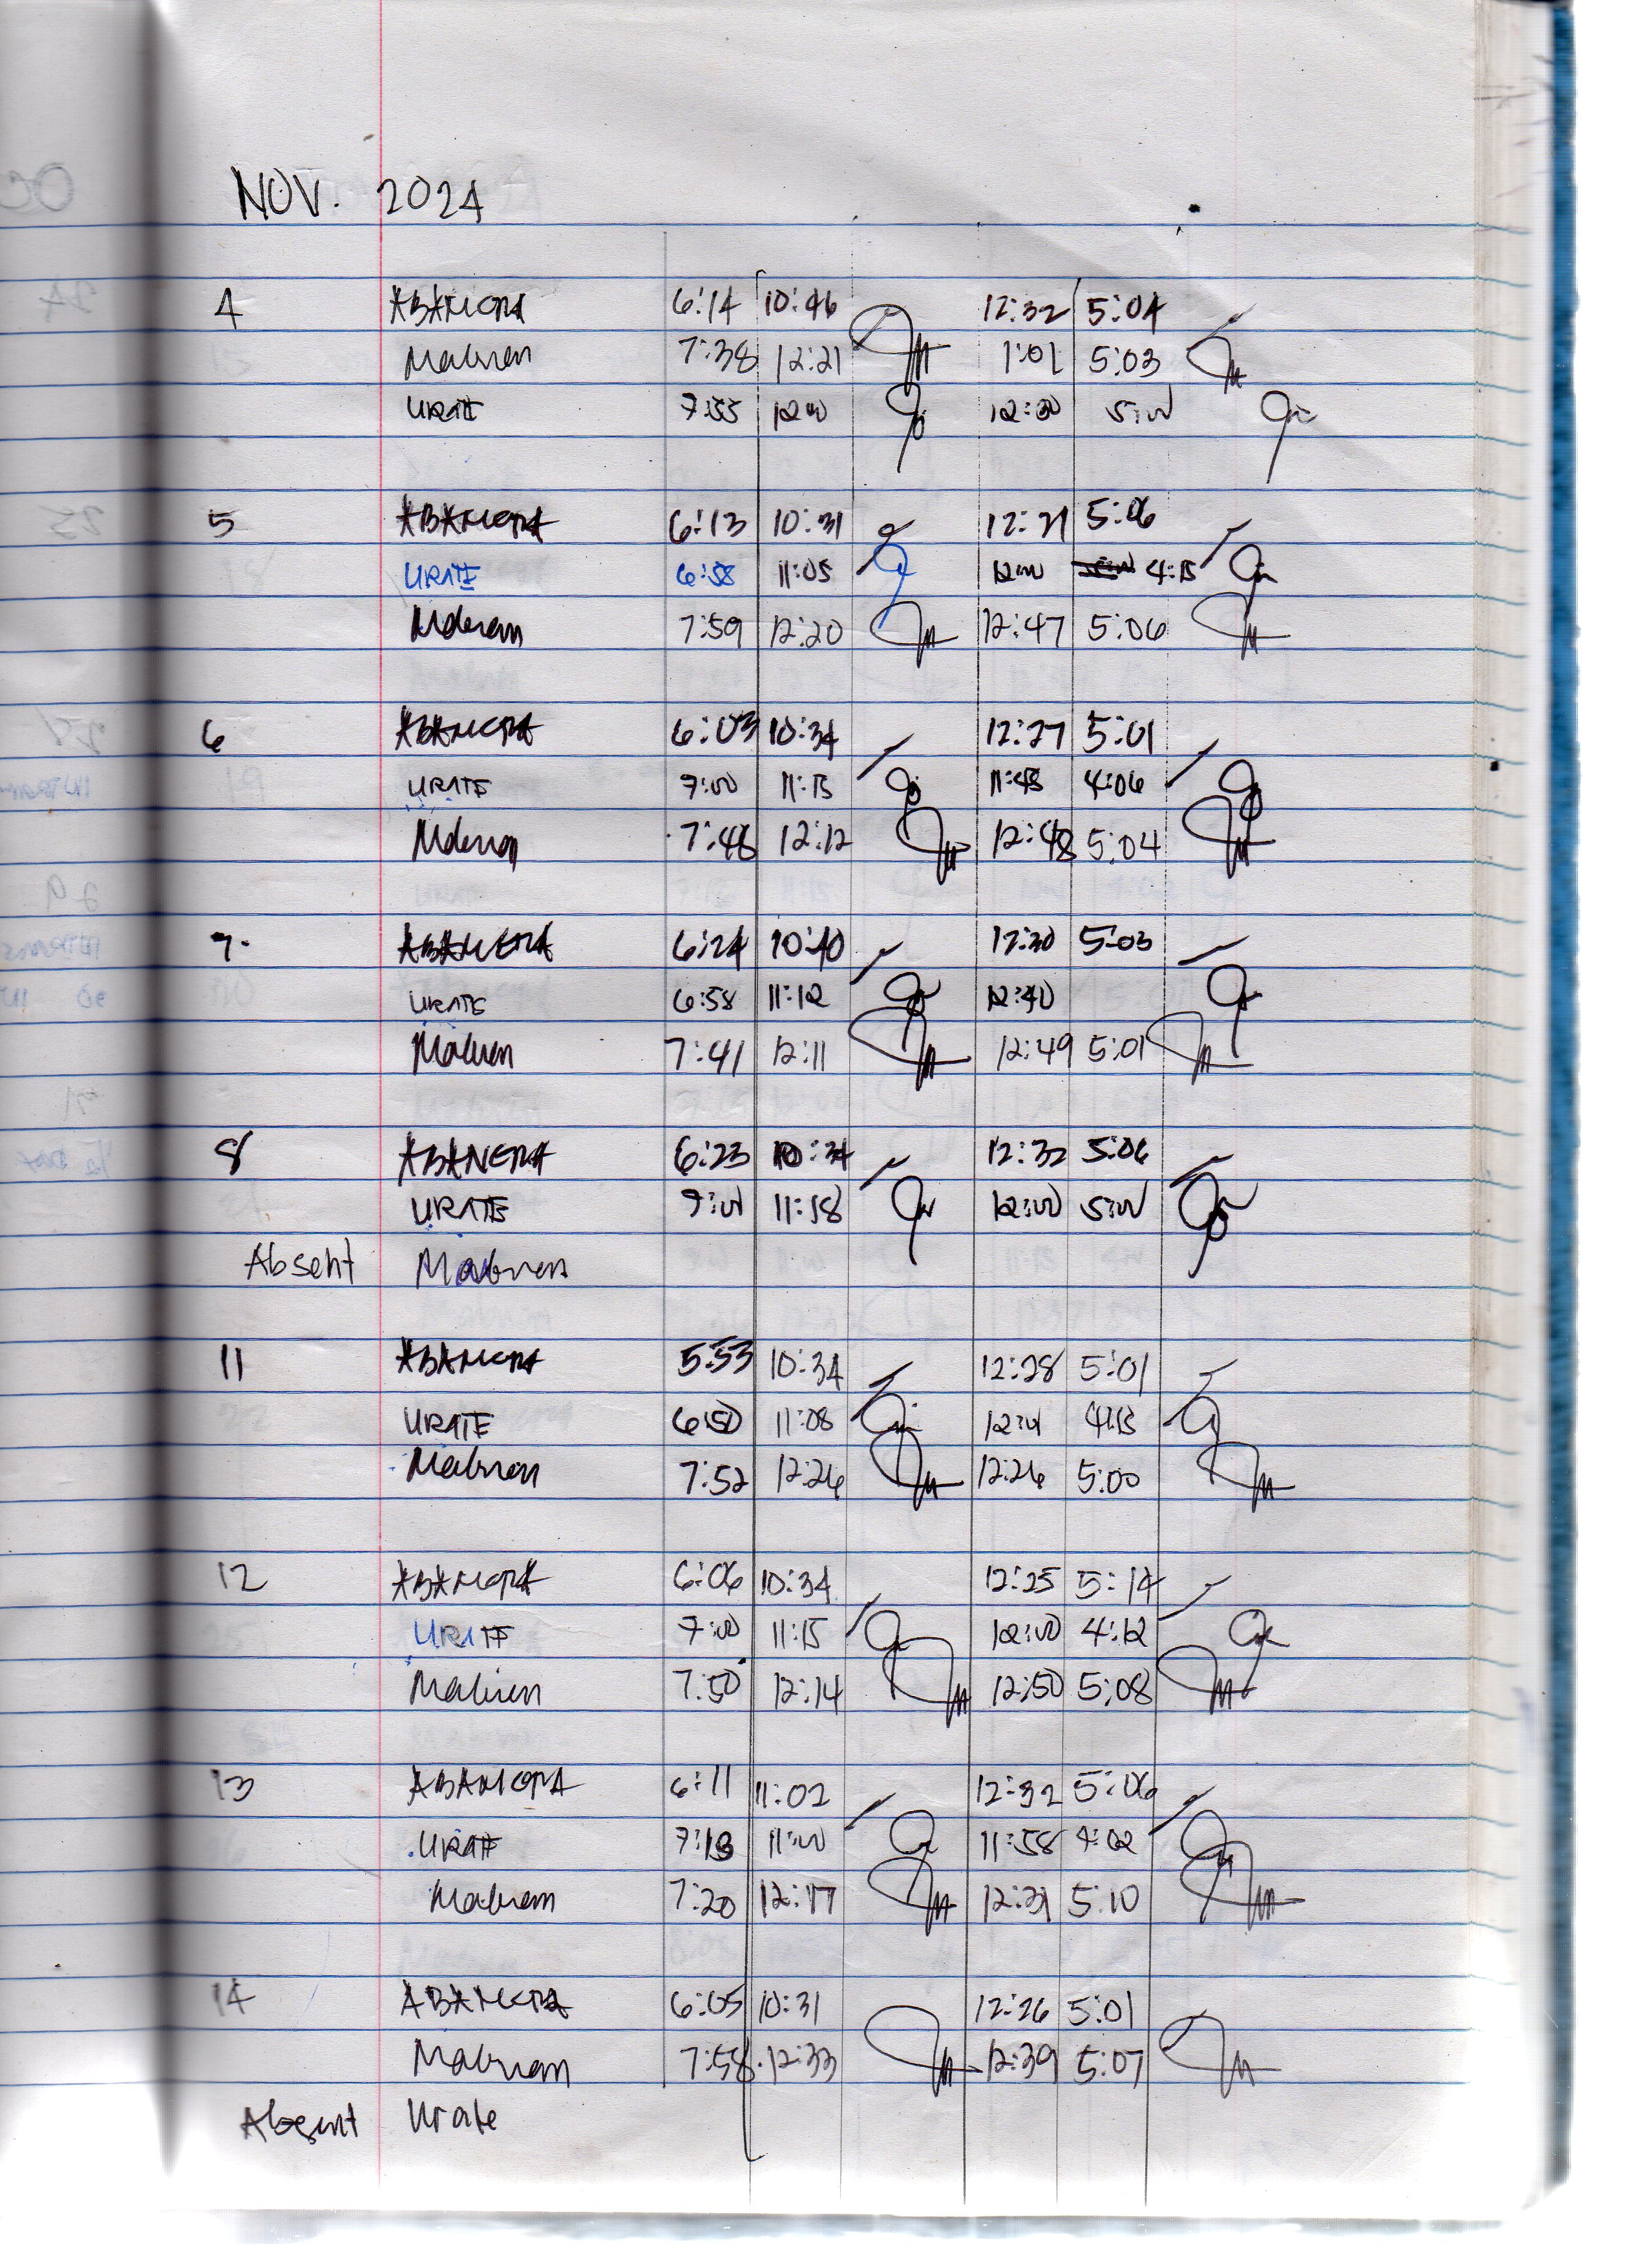 NOV. 2024
4 ABANERA 6:14 10:46 12:32 5:04
Mabuen 7:38 12:21 1:01 5:03
URATE 7:55 12:00 12:30 5:00
5 ABANERA 6:13 10:31 12:21 5:06
URATE 6:58 11:05 12:00 4:15
7:59 12:20 12:47 5:06
6 ABANERA 6:03 10:34 12:27 5:01
URATE 7:00 11:15 11:45 4:06
7:48 12:12 12:48 5:04
7. ABANERA 6:24 10:40 12:30 5:03
URATE 6:58 11:12 12:40
Mabuen 7:41 12:11 12:49 5:01
8 ABANERA 6:23 10:34 12:32 5:06
URATE 7:00 11:18 12:00 5:00
Absent Mabuen
11 ABANERA 5:53 10:34 12:28 5:01
URATE 6:50 11:08 12:01 4:15
Mabuen 7:52 12:26 12:26 5:00
12 ABANERA 6:06 10:34 12:25 5:14
URATE 7:00 11:15 12:00 4:12
Mabuen 7:50 12:14 12:50 5:08
13 ABANERA 6:11 11:02 12:32 5:06
URATE 7:13 11:00 11:58 4:02
Mabuen 7:20 12:17 12:31 5:10
14 ABANERA 6:05 10:31 12:26 5:01
Mabuen 7:58 12:33 12:39 5:07
Absent Urate